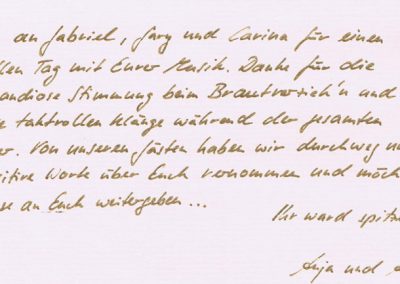 an Gabriel, Gary und Carina für einen
llen Tag mit Eurer Musik. Danke für die
andiose Stimmung beim Brautverzieh'n und
e taktvollen Klänge während der gesamten
er. Von unseren Gästen haben wir durchweg nu
sitive Worte über Euch vernommen und möch
se an Euch weitergeben...
Ihr ward spitze
Anja und